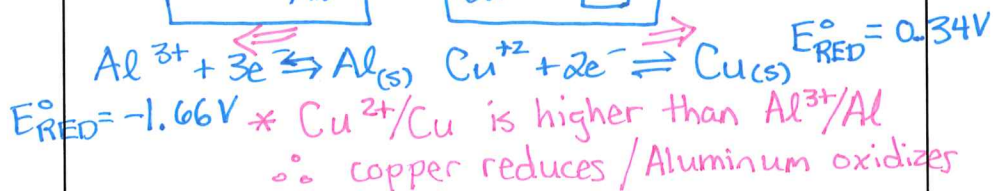 Al³⁺ + 3e⁻ ⇆ Al(s) Cu⁺² + 2e⁻ ⇌ Cu(s) E°RED = 0.34V
E°RED = -1.66V * Cu²⁺/Cu is higher than Al³⁺/Al
∴ copper reduces / Aluminum oxidizes